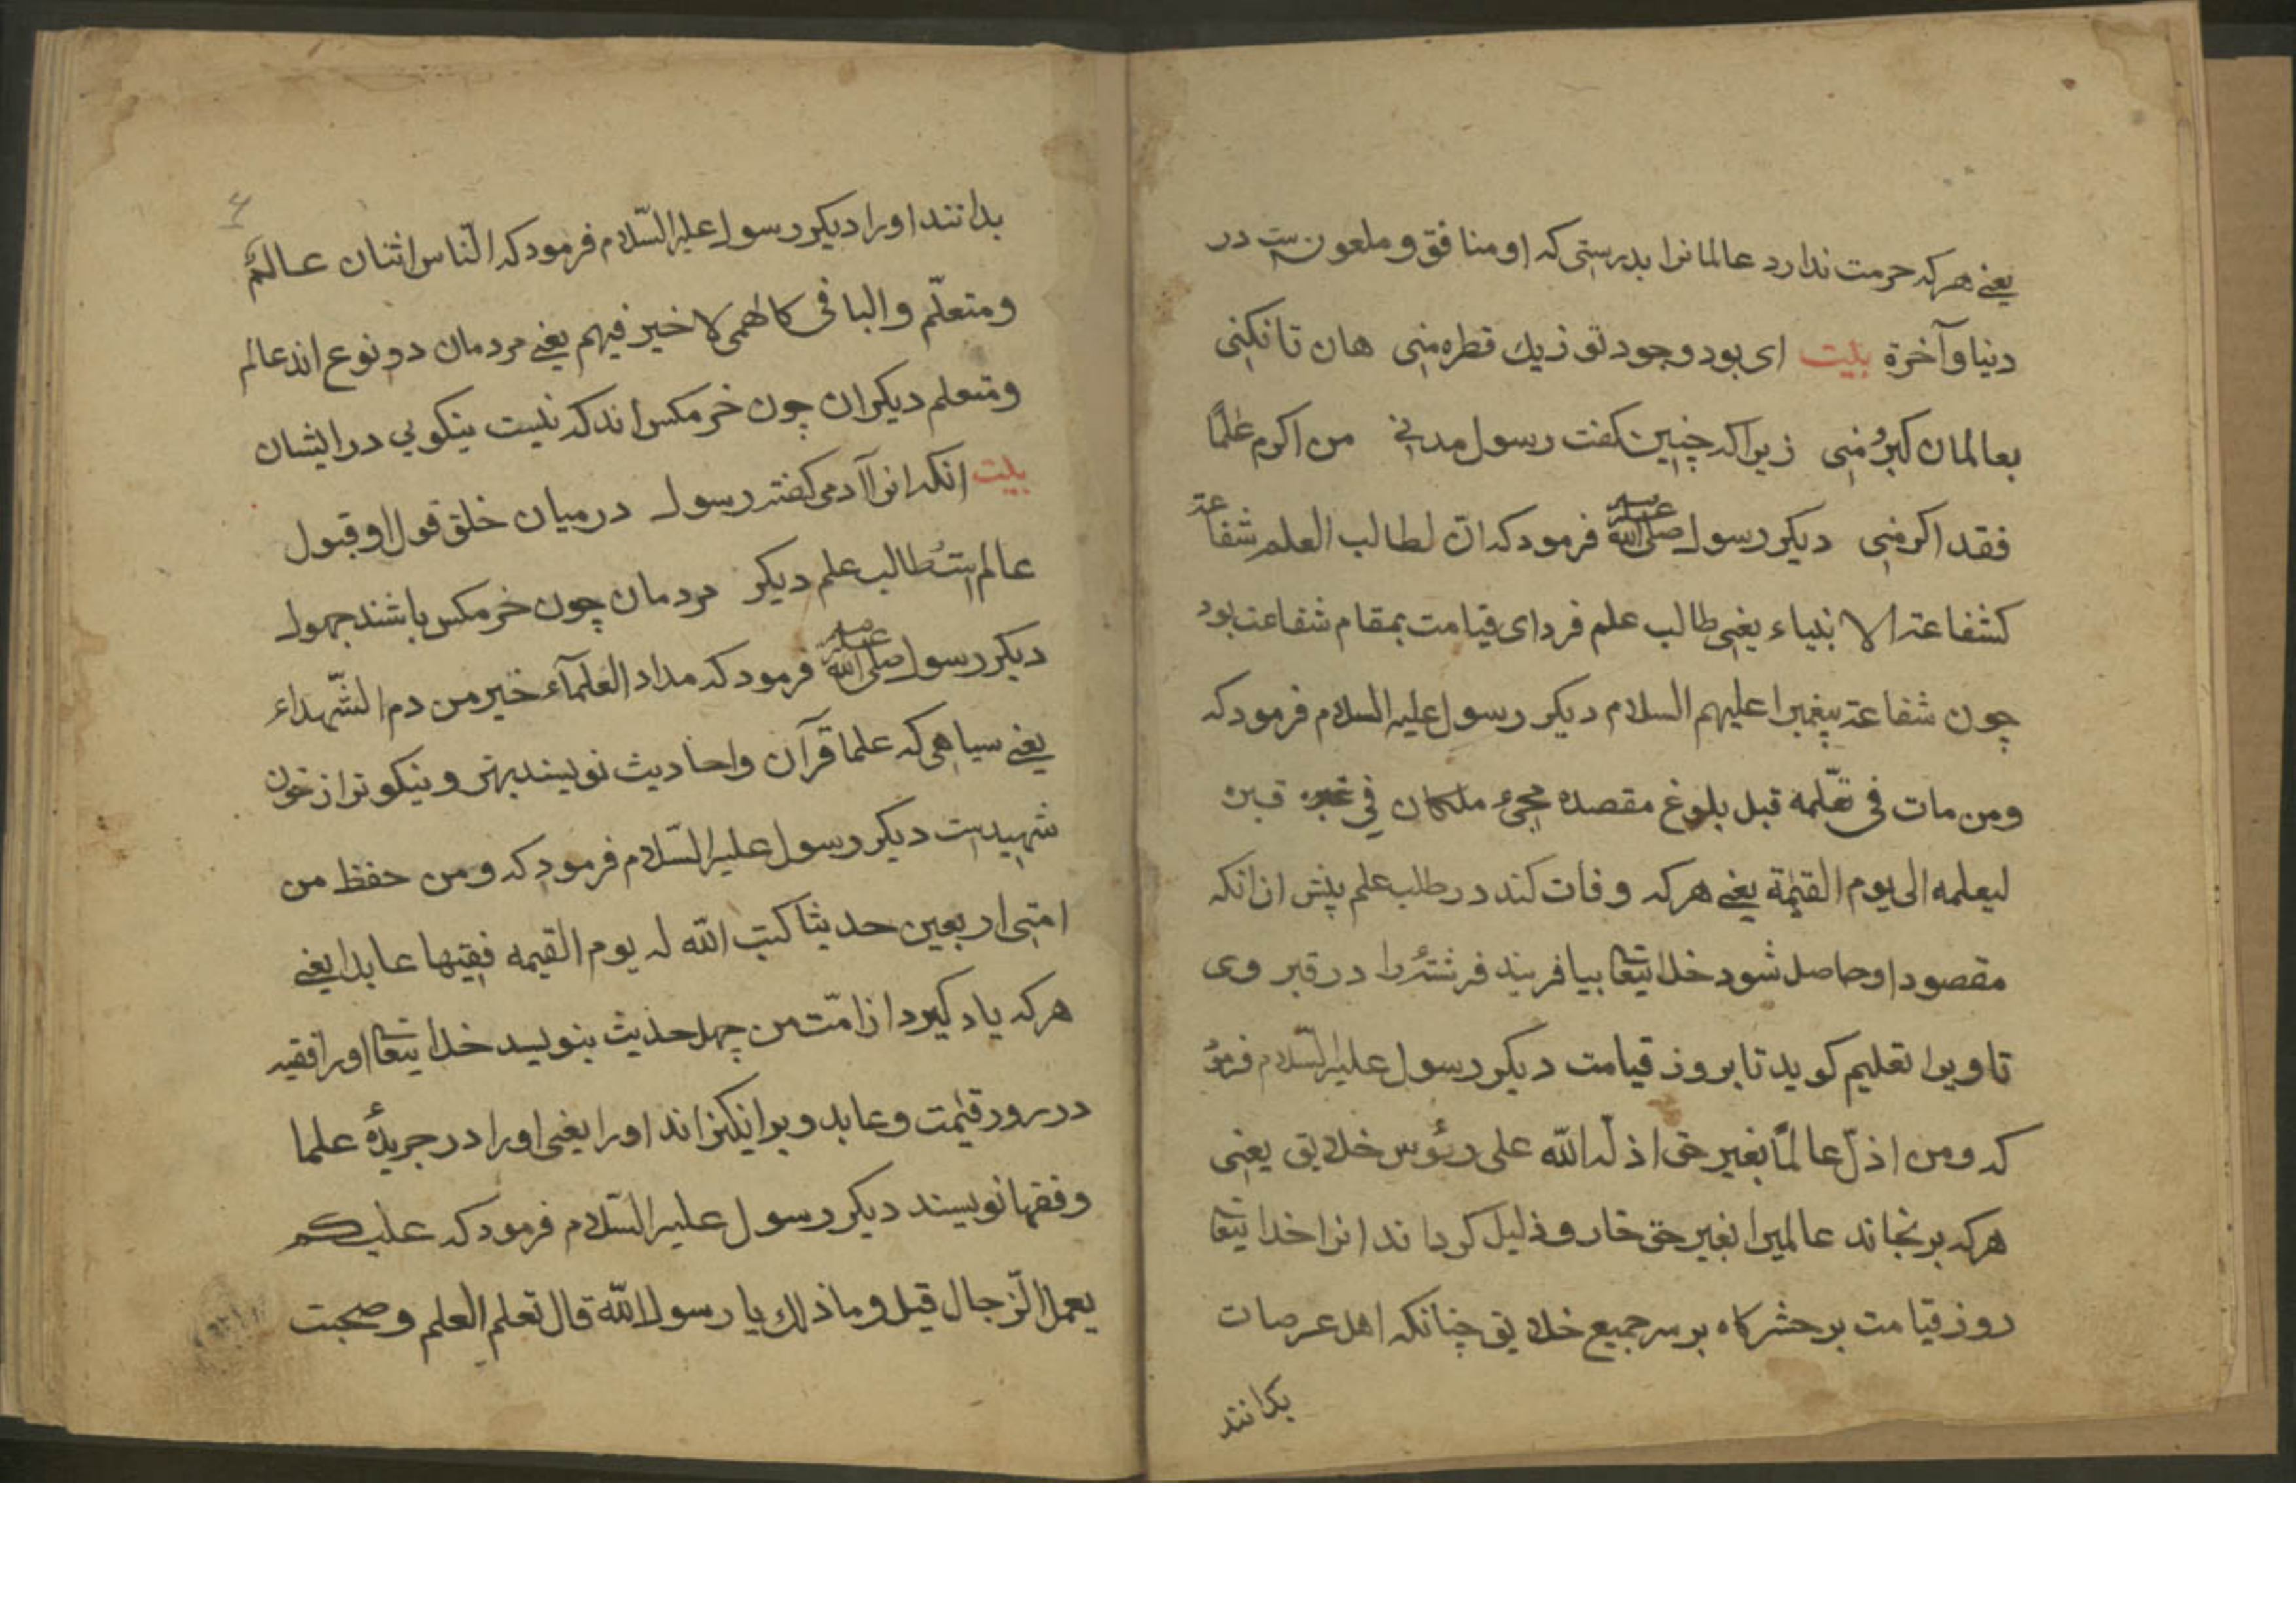 یعنے هرکه حرمت ندارد عالمانرا بدرستی که او منافق و ملعونست در
دنیا و آخرة بیت ای بود وجود تو ز یك قطره منی هان تا نکنی
بعالمان کبر و منی زیرا که چنین کفت رسول مدنی من اکرم علمًا
فقد اکرمنی دیکر رسول صلی الله علیه فرمود که انّ لطالب العلم شفاعة
کشفاعة الانبیاء یعنی طالب علم فردای قیامت بمقام شفاعت بود
چون شفاعة پیغمبرا علیهم السلام دیکر رسول علیه السلام فرمود که
ومن مات فی تعلّمه قبل بلوغ مقصده مجیء ملکان فی قبره
لیعلمه الی یوم القیمة یعنے هرکه وفات کند در طلب علم پیش از انکه
مقصود او حاصل شود خدایتعا بیافریند فرشتۀ را در قبر وی
تا ویرا تعلیم کوید تا بروز قیامت دیکر رسول علیه السّلام فرمود
که ومن اذلّ عالمًا بغیر حق اذلّه الله علی رئوس خلایق یعنی
هرکه برنجاند عالمیرا بغیر حق خار و ذلیل کرداند انرا خدایتعا
روز قیامت بر حشرکاه بر سر جمیع خلایق چنانکه اهل عرصات
بدانند
۴
بدانند اورا دیکر رسول علیه السّلام فرمود که النّاس اثنان عالمٌ
ومتعلّم والباقی کالهمی لا خیر فیهم یعنے مردمان دو نوع اند عالم
ومتعلم دیکران چون خرمکس اند که نیست نیکویی در ایشان
بیت انکه انرا آدمی کفته رسول در میان خلق قول او قبول
عالمست طالب علم دیکر مردمان چون خرمکس باشند جهول
دیکر رسول صلی الله علیه فرمود که مداد العلمآء خیر من دم الشّهداء
یعنے سیاهی که علما قرآن واحادیث نویسند بهتر ونیکوتر از خون
شهیدست دیکر رسول علیه السّلام فرمود که ومن حفظ من
امتی اربعین حدیثا کتب الله له یوم القیمه فقیها عابدا یعنے
هرکه یاد کیرد از امّت من چهل حدیث بنویسد خدایتعا اورا فقیه
در روز قیمت وعابد وبرانکیزاند اورا یعنی اورا در جریدۀ علما
وفقها نویسند دیکر رسول علیه السّلام فرمود که علیکم
بعمل الرّجال قیل وما ذلك یا رسول الله قال تعلم العلم وصحبت